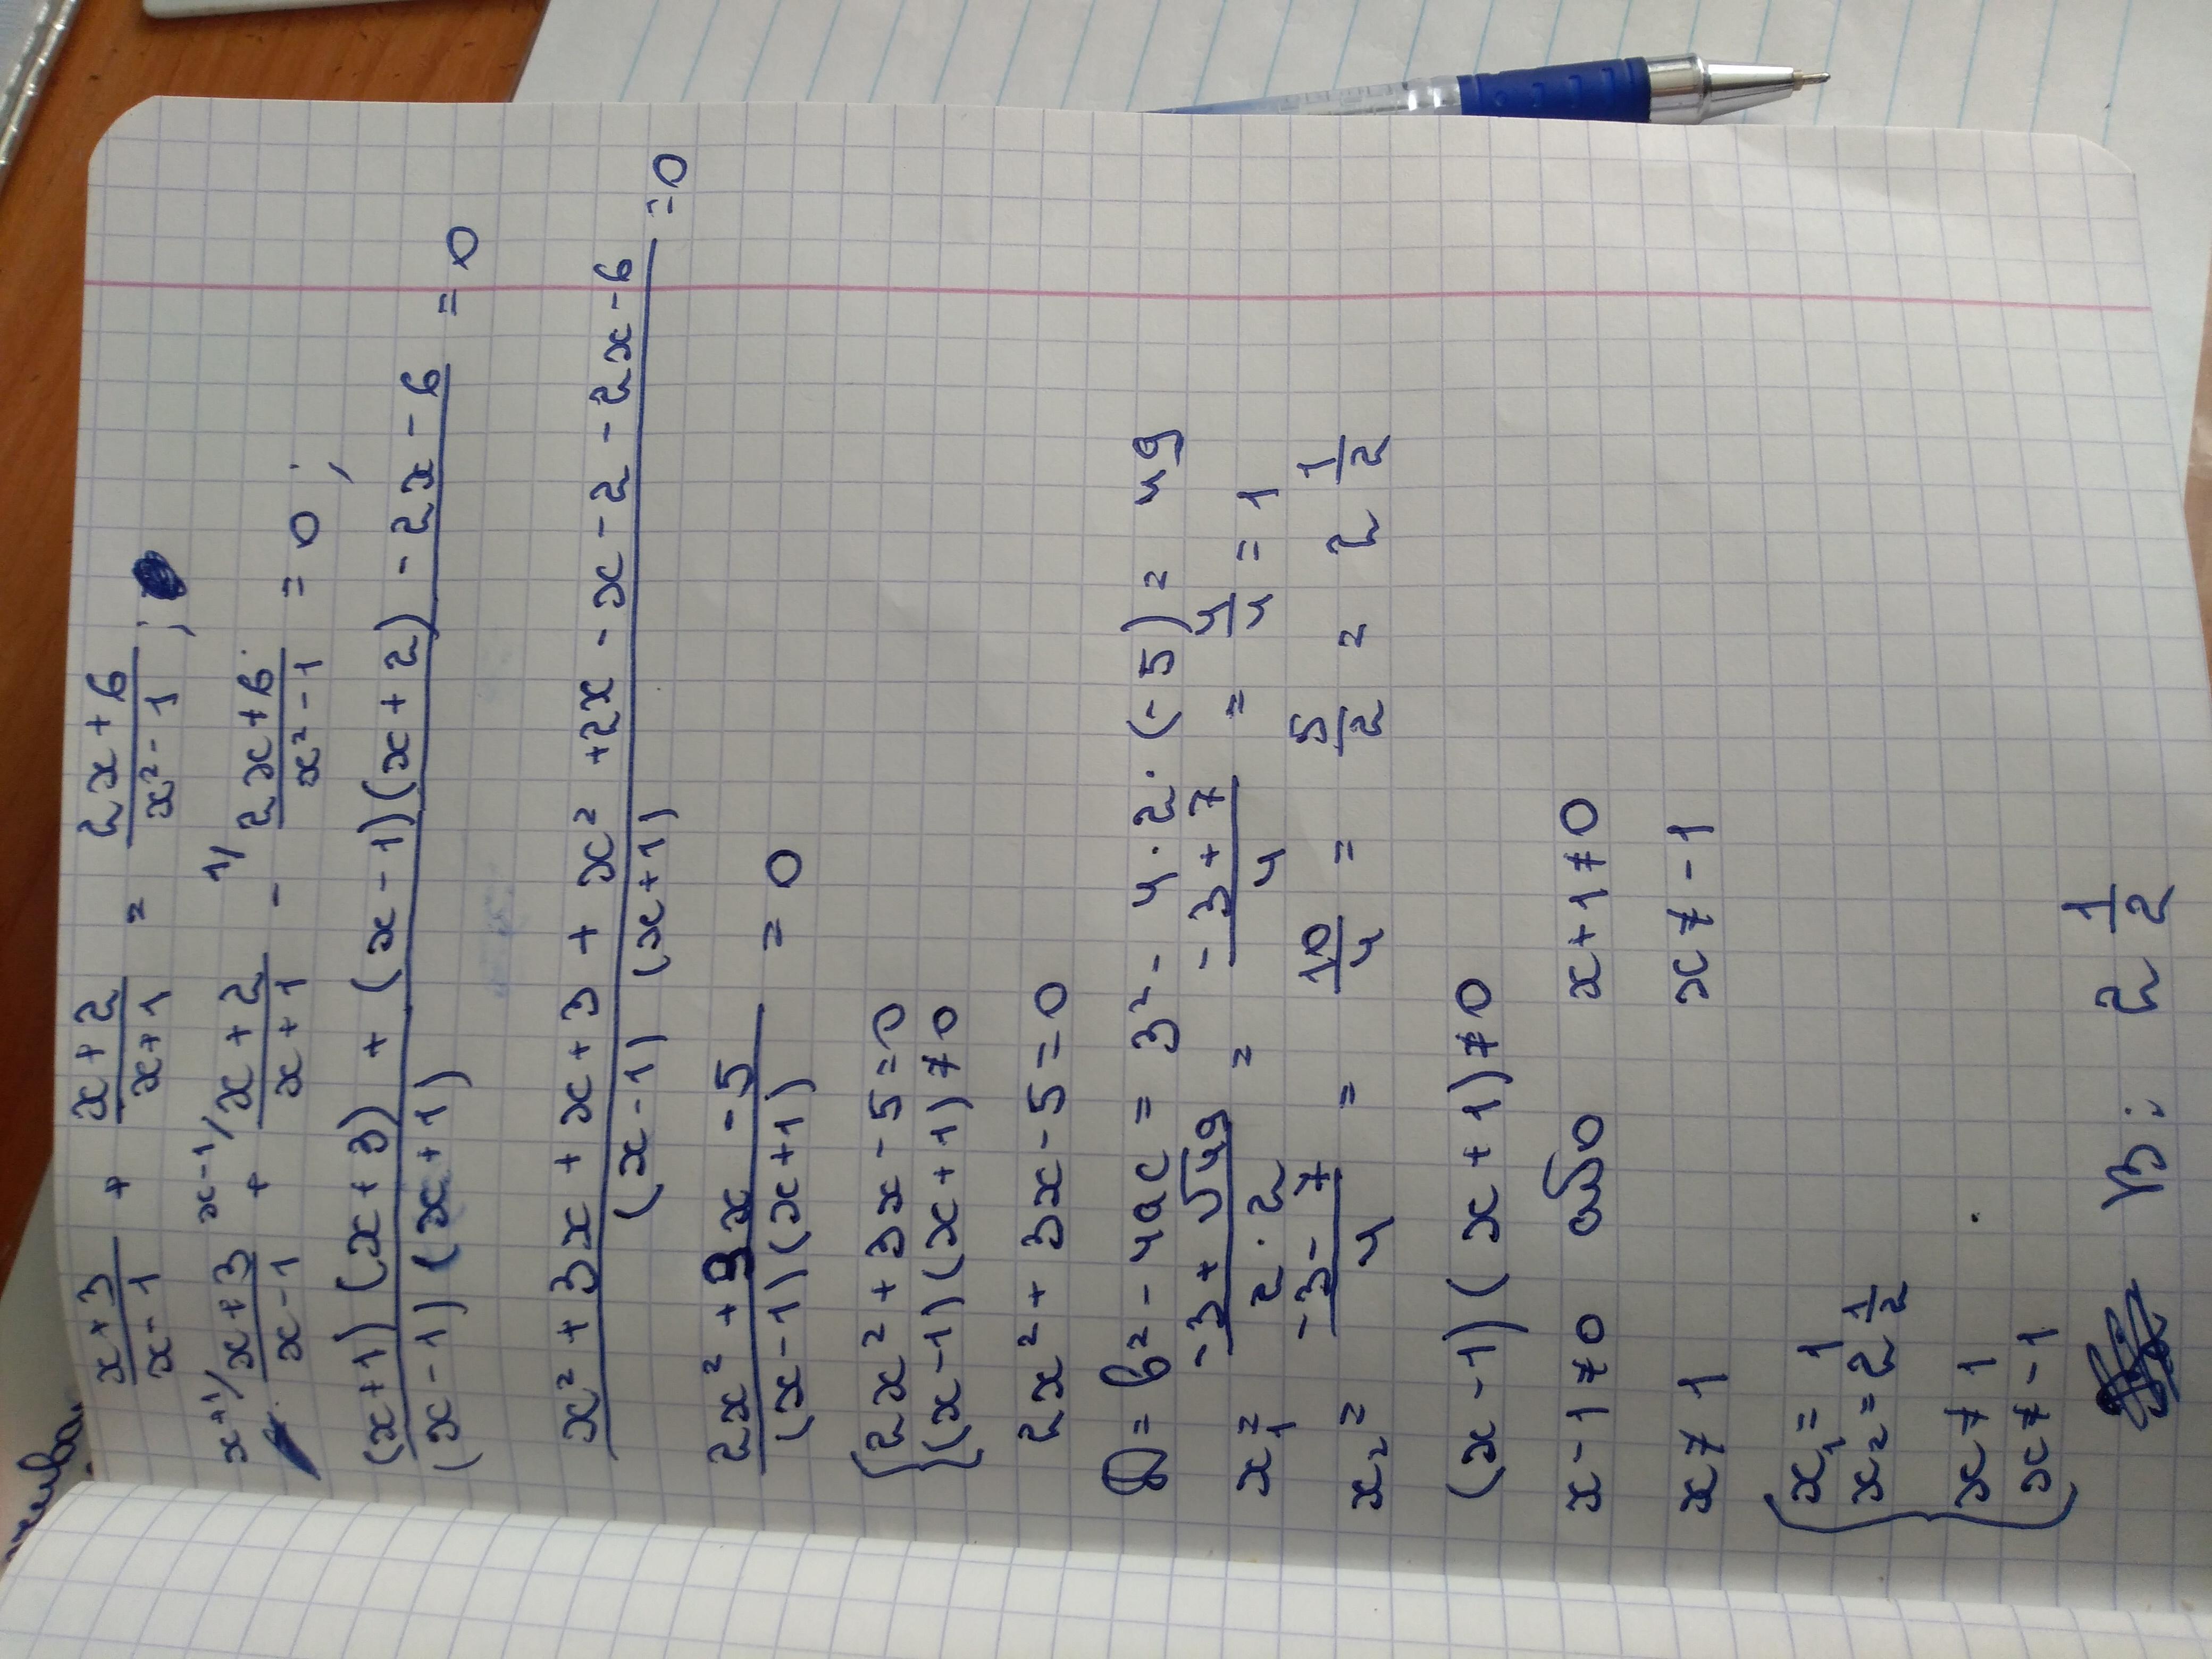 x+3/x-1 + x+2/x+1 = 2x+6/x²-1 ;
x+1/ x+3/x-1 + x-1/ x+2/x+1 - 1/ 2x+6/x²-1 = 0 ;
(x+1)(x+3) + (x-1)(x+2) - 2x - 6 / (x-1)(x+1) = 0
x² + 3x + x + 3 + x² + 2x - x - 2 - 2x - 6 / (x-1)(x+1) = 0
2x² + 3x - 5 / (x-1)(x+1) = 0
{ 2x² + 3x - 5 = 0
(x-1)(x+1) ≠ 0
2x² + 3x - 5 = 0
D = b² - 4ac = 3² - 4·2·(-5) = 49
x₁ = -3+√49 / 2·2 = -3+7 / 4 = 4/4 = 1
x₂ = -3-7 / 4 = 10/4 = 5/2 = 2 1/2
(x-1)(x+1) ≠ 0
x-1 ≠ 0 або x+1 ≠ 0
x ≠ 1 x ≠ -1
{ x₁ = 1
x₂ = 2 1/2
x ≠ 1
x ≠ -1
В: 2 1/2